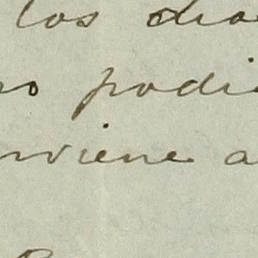 los dia
no podi
nviene a